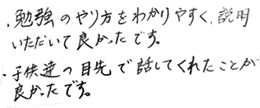 ・勉強のやり方をわかりやすく、説明
いただいて良かったです。
・子供達の目先で話してくれたことが
良かったです。